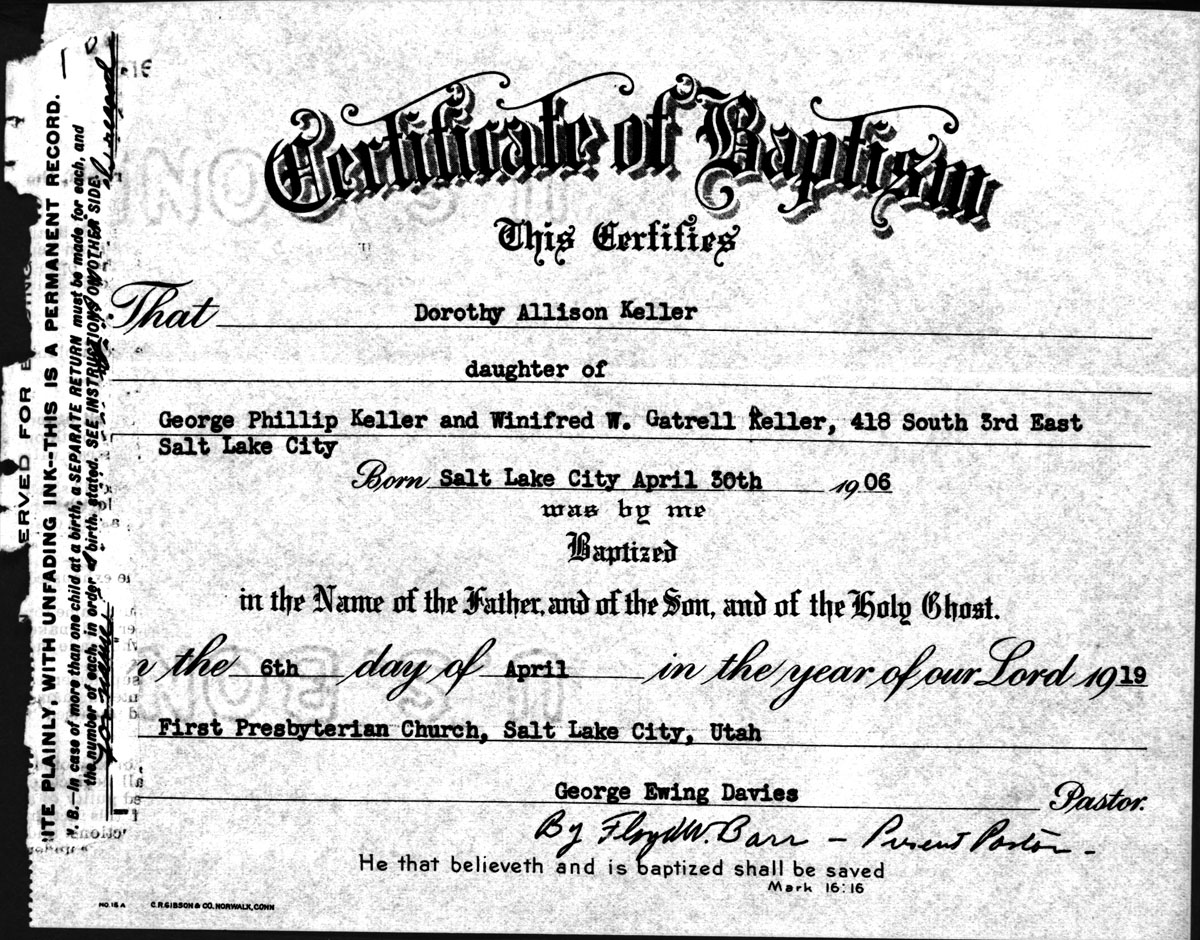 Certificate of Baptism
This Certifies
That Dorothy Allison Keller
daughter of
George Phillip Keller and Winifred W. Gatrell Keller, 418 South 3rd East
Salt Lake City
Born Salt Lake City April 30th 1906
was by me
Baptized
in the Name of the Father, and of the Son, and of the Holy Ghost.
the 6th day of April in the year of our Lord 1919
First Presbyterian Church, Salt Lake City, Utah
George Ewing Davies Pastor.
By Floyd W. Barr — Present Pastor -
He that believeth and is baptized shall be saved
Mark 16:16
NO. 15 A C.R. GIBSON & CO. NORWALK, CONN
ERVED FOR
ITE PLAINLY, WITH UNFADING INK--THIS IS A PERMANENT RECORD.
N. B.—In case of more than one child at a birth, a SEPARATE RETURN must be made for each, and
the number of each, in order of birth, stated. SEE INSTRUCTIONS ON OTHER SIDE.